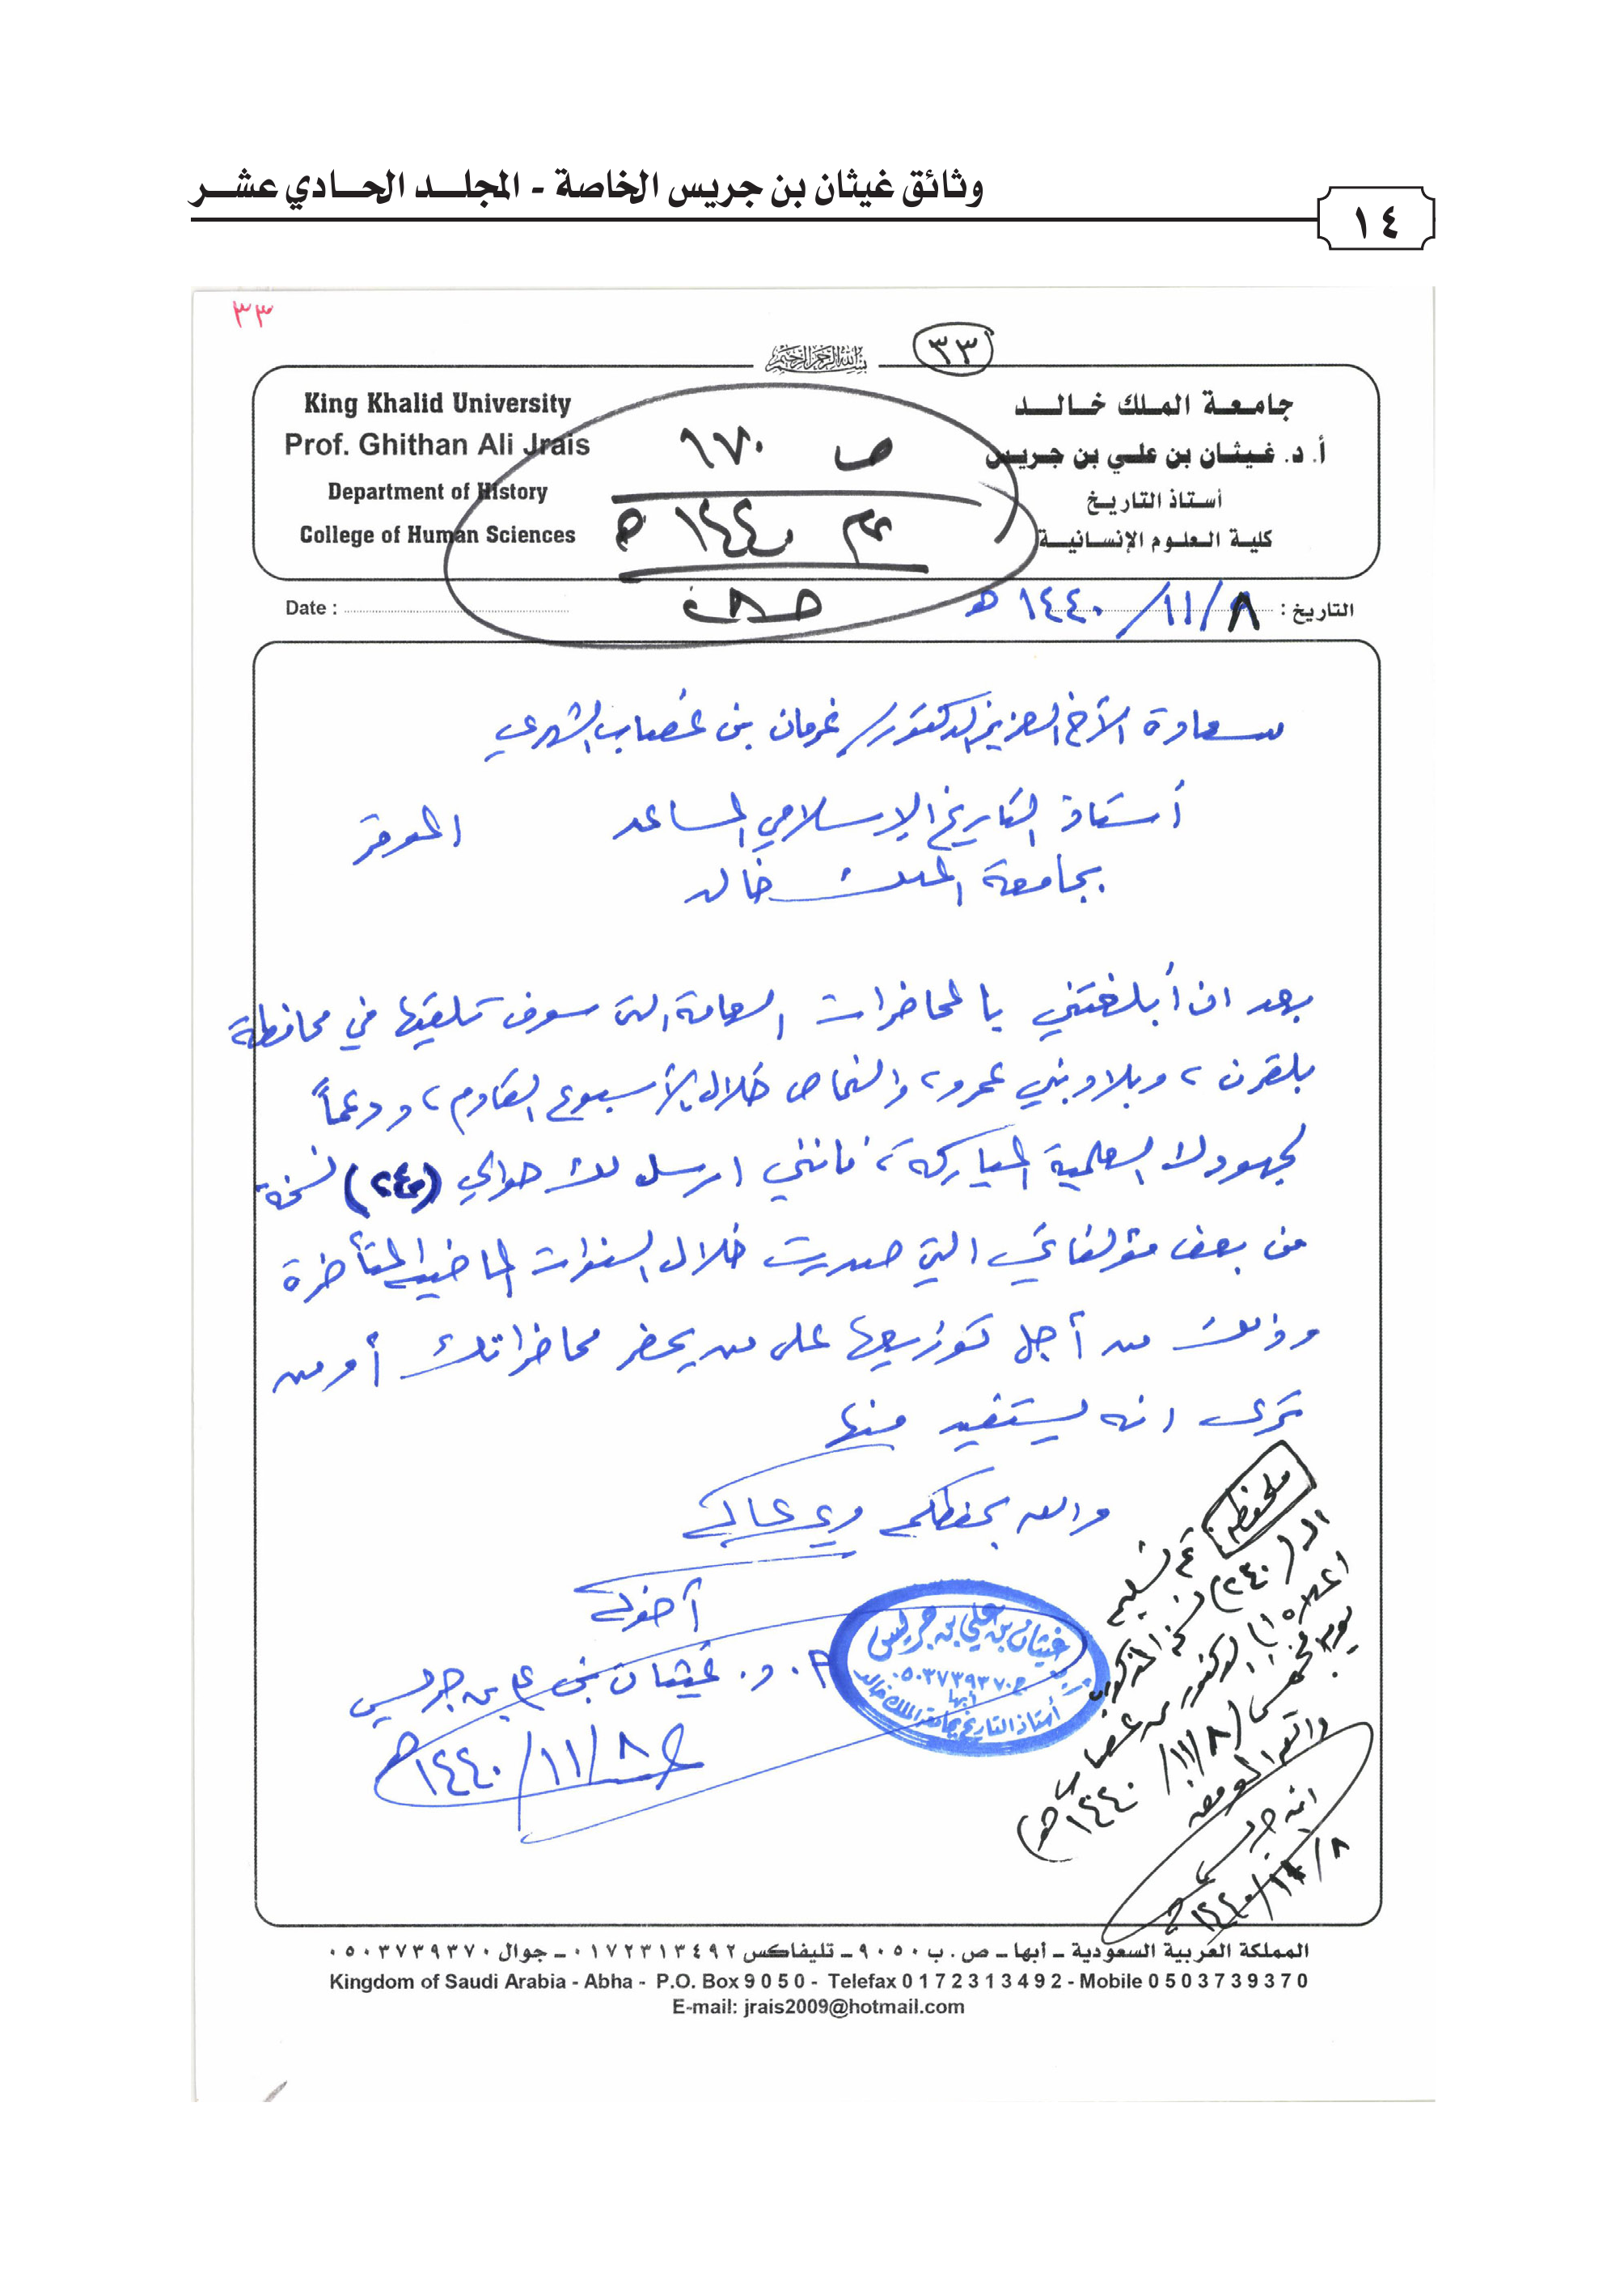 وثائق غيثان بن جريس الخاصة - المجلد الحادي عشر
١٤
٣٣
٣٣
بسم الله الرحمن الرحيم
King Khalid University
Prof. Ghithan Ali Jrais
Department of History
College of Human Sciences
جامعة الملك خالد
أ. د. غيثان بن علي بن جريس
أستاذ التاريخ
كلية العلوم الإنسانية
ص ١٧٠
عام ١٤٤٠هـ
Date :
التاريخ : ٨/١١/١٤٤٠هـ
سعادة الأخ العزيز الدكتور/ غرمان بن غصاب الشهري
أستاذ التاريخ الإسلامي المساعد الموقر
بجامعة الملك خالد
بعد ان أبلغتني بالمحاضرات العامة التي سوف تلقيها في محافظة
بلقرن، وبلاد بني عمرو، والنماص خلال الأسبوع القادم، ودعماً
لجهودك العلمية المباركة، فانني ارسل لك حوالي (٢٤٠) نسخة
من بعض مؤلفاتي التي صدرت خلال السنوات الماضية المتأخرة
وذلك من أجل توزيعها على من يحضر محاضراتك أو من
ترى انه يستفيد منها
والله يحفظكم ويرعاكم
أخوك
أ. د. غيثان بن علي بن جريس
٨/١١/١٤٤٠هـ
غيثان بن علي بن جريس
٠٥٠٣٧٣٩٣٧٠
أبها
أستاذ التاريخ بجامعة الملك خالد
ملحوظة
تم تسليم
الـ (٢٤٠) نسخة المذكورة
أعلاه الدكتور بن غصاب
يوم الخميس (٨/١١/١٤٤٠هـ)
والله الموفق
ابن جريس
٨/١١/١٤٤٠هـ
المملكة العربية السعودية ـ أبها ـ ص . ب ٩٠٥٠ ـ تليفاكس ٠١٧٢٣١٣٤٩٢ ـ جوال ٠٥٠٣٧٣٩٣٧٠
Kingdom of Saudi Arabia - Abha - P.O. Box 9 0 5 0 - Telefax 0 1 7 2 3 1 3 4 9 2 - Mobile 0 5 0 3 7 3 9 3 7 0
E-mail: jrais2009@hotmail.com